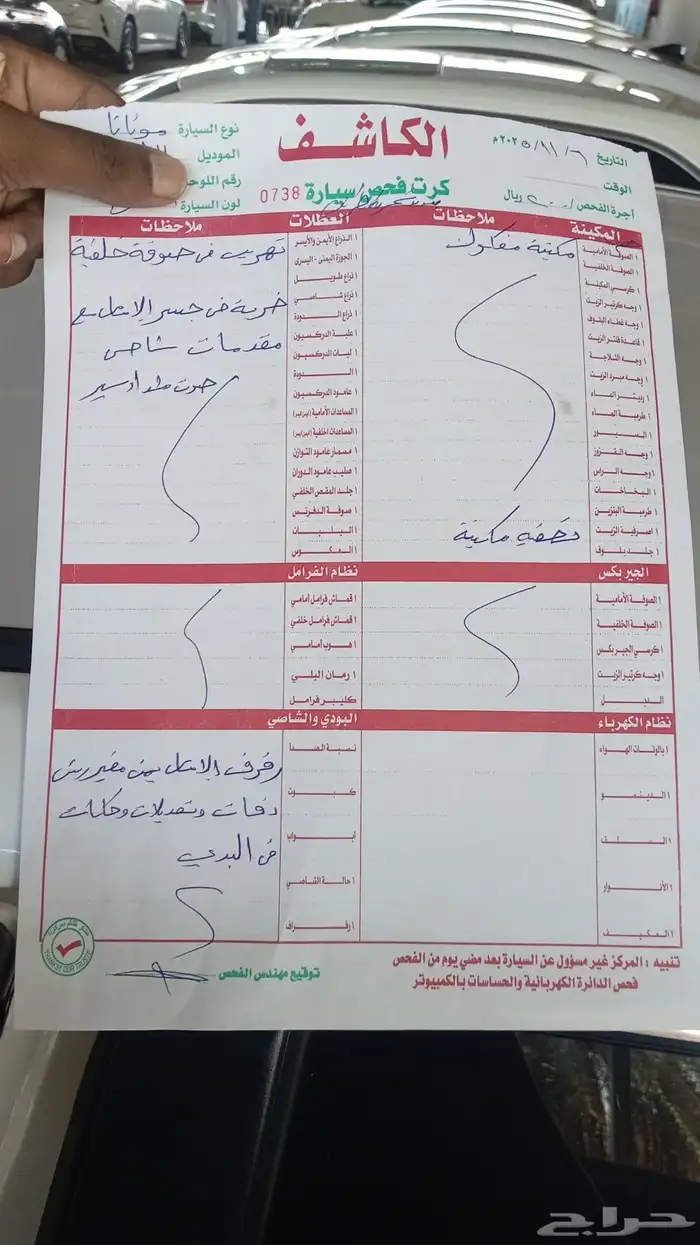 الكاشف
كرت فحص سيارة 0738
التاريخ ٦ / ١١ / ٢٠٢٥م
الوقت
أجرة الفحص ريال
نوع السيارة سوناتا
الموديل
رقم اللوحة
لون السيارة
المكينة
ملاحظات
العضلات
ملاحظات
١ الصوفة الأمامية
١ الصوفة الخلفية
١ كرسي المكينة
١ وجه كرتير الزيت
١ وجه غطاء البلوف
١ قاعدة فلتر الزيت
١ وجه الثلاجة
١ وجه مبرد الزيت
١ رديتر الماء
١ طرمبة الماء
١ وجه الراس
١ البخاخات
١ طرمبة البنزين
١ صرفية الزيت
١ جلد بلوف
مكينة مفكوك
مكينة
١ الذراع الأيمن والأيسر
١ الجوزة اليمنى - اليسرى
١ ذراع طويل
١ ذراع شاصي
١ ذراع الدودة
١ علبة الدركسيون
١ ليات الدركسيون
١ الدودة
١ عامود الدركسيون
١ المساعدات الأمامية
١ المساعدات الخلفية
١ مسمار عامود التوازن
١ صليب عامود الدوران
١ جلد المقص الخلفي
١ صوفة الدفرنس
١ البلبات
١ العكوس
تهريب في صوفة خلفية
ضربة في جسر الامامي مع
مقدمات شاصي
صوت
الجيربكس
١ الصوفة الأمامية
١ الصوفة الخلفية
١ كرسي الجيربكس
١ وجه كرتير الزيت
نظام الفرامل
١ قماش فرامل أمامي
١ قماش فرامل خلفي
١ هوب أمامي
١ رمان البلي
كليبر فرامل
نظام الكهرباء
١ بالونات الهواء
١ الدينمو
١ السلف
١ الأنوار
١ المكيف
البودي والشاصي
نسبة الصدا
كبوت
ابواب
١ حالة الشاصي
١ رفراف
رفرف الامامي يمين مغير رش
دقات وتعديلات وحكات
في البدي
تنبيه : المركز غير مسؤول عن السيارة بعد مضي يوم من الفحص
فحص الدائرة الكهربائية والحساسات بالكمبيوتر
توقيع مهندس الفحص
حراج